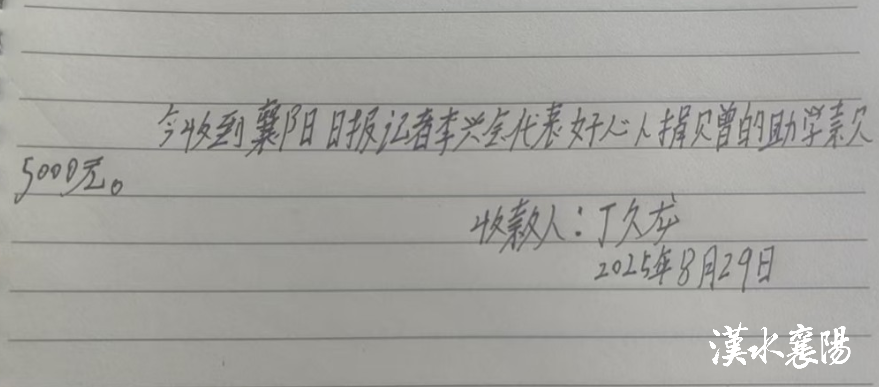 今收到襄阳日报记者李兴全代表好心人捐赠的助学款
5000元。
收款人：丁久龙
2025年8月29日
漢水襄陽